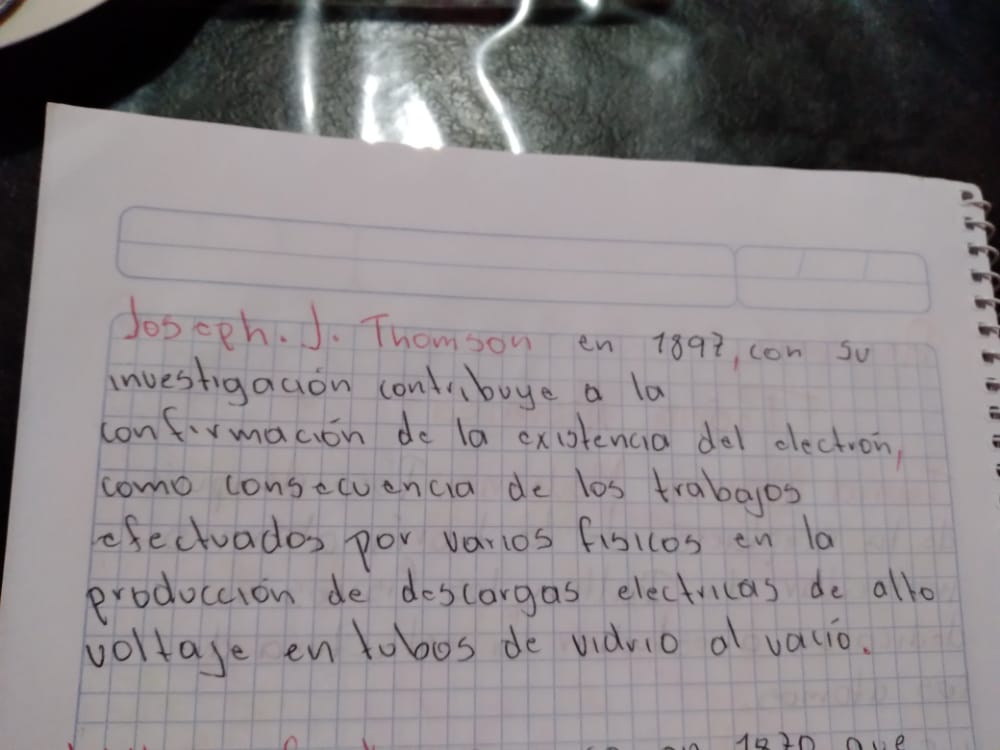 Joseph. J. Thomson en 1897, con su
investigación contribuye a la
confirmación de la existencia del electrón,
como consecuencia de los trabajos
efectuados por varios fisicos en la
producción de descargas electricas de alto
voltaje en tubos de vidrio al vacío.
en 1870 que